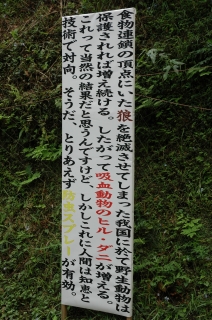 食物連鎖の頂点にいた狼を絶滅させてしまった我国に於て野生動物は
保護されれば増え続ける。したがって吸血動物のヒル・ダニが増える。
これって当然の結果だと思うんですけど、しかしこれに人間は知恵と
技術で対向。そうだ、とりあえずスプレーが有効。